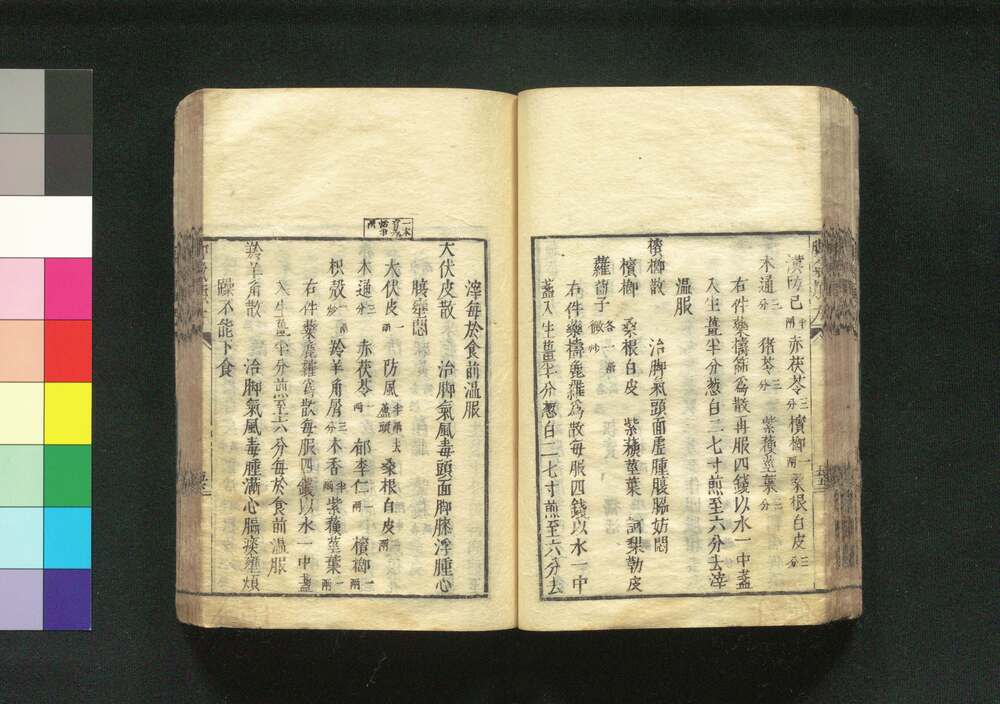 漢防己半兩 赤茯苓三分 檳榔一兩 桑根白皮三分
木通三分 猪苓三分 紫蘓莖葉三分
右件藥擣篩為散每服四錢以水一中盞
入生薑半分葱白二七寸煎至六分去滓
溫服
檳榔散 治脚氣頭面虛腫膓脇妨悶
檳榔 桑根白皮 紫蘓莖葉 訶梨勒皮
蘿蔔子微炒 各一兩
右件藥擣麁羅為散每服四錢以水一中
盞入生薑半分葱白二七寸煎至六分去
滓每於食前溫服
大伏皮散 治脚氣風毒頭面脚膝浮腫心
膓壅悶
大伏皮一兩 防風半兩去蘆頭 桑根白皮兩
木通三分 赤茯苓一兩 郁李仁一兩 檳榔一兩
枳殼一兩炒 羚羊角屑三分 木香半兩 紫蘓莖葉一兩
右件藥麁羅為散每服四錢以水一中盞
入生薑半分煎至六分每於食前溫服
羚羊角散 治脚氣風毒腫滿心膓痰壅煩
躁不能下食